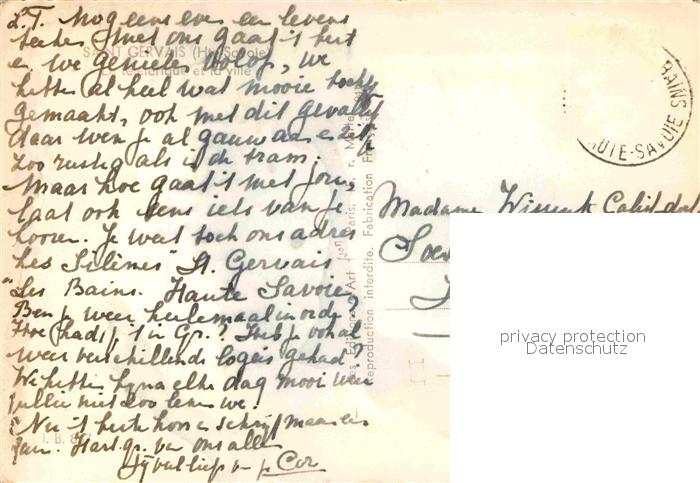 L.T. Nog eens even een levens
teeken, met ons gaat 't best
en we genieten volop, we
hebben al heel wat mooie tochtjes
gemaakt, ook met dit geval
daar wen je al gauw aan en zit je
zoo rustig als in de tram.
Maar hoe gaat 't met jou,
laat ook eens iets van je
hooren. Je weet toch ons adres
"les Silènes" St. Gervais
Les Bains. Haute Savoie,
Ben je weer heelemaal in orde?
Hoe had je 't in Gr.? Heb je ook al
weer verschillende logees gehad?
We hebben bijna elke dag mooi weer
jullie niet zoo lezen we.
Nu 't beste hoor en schrijf maar eens
gauw. Hart. gr. van ons allen
Cor
SAINT GERVAIS (Hte-Savoie)
Le téléférique et la ville
I. B. 8
Les Editions d'Art Paris, r.
Reproduction interdite. Fabrication
BAINS
HAUTE-SAVOIE
Madame
privacy protection
Datenschutz